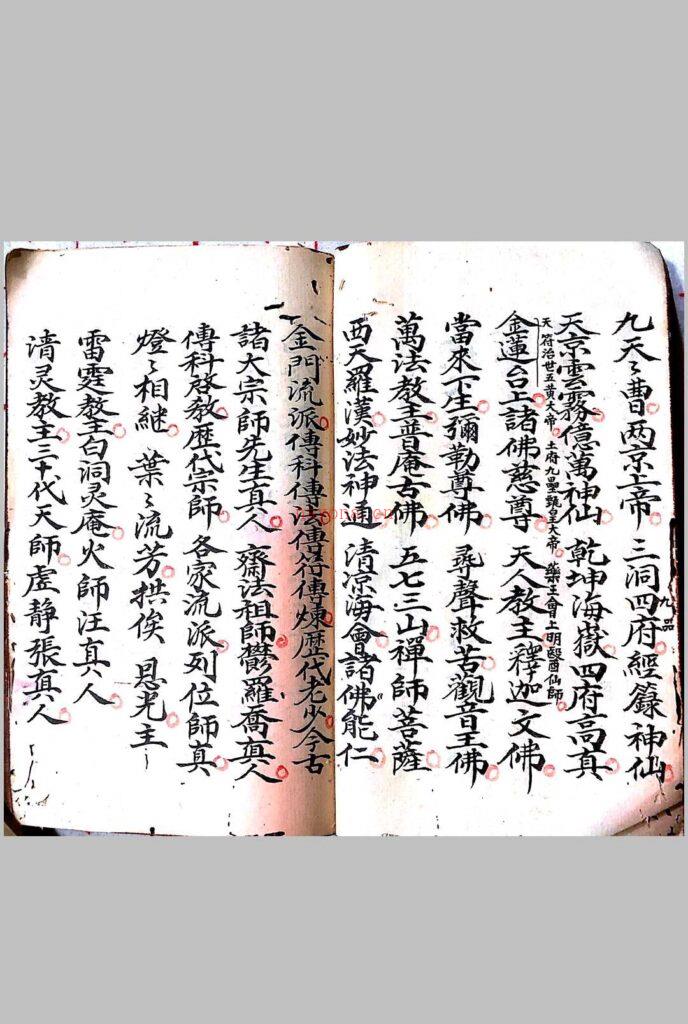 九天〻曹两京上帝 三洞四府經籙神仙
九品
天京雲霧億萬神仙 乾坤海嶽四府高真
天符治世五黄大帝 土府九壘髙皇大帝 藥王會上明醫仙师
金蓮台上諸佛慈尊 天人教主釋迦文佛
當來下生彌勒尊佛 尋聲救苦觀音王佛
萬法教主普庵古佛 五七三山禪師菩薩
西天羅漢妙法神通 清凉海會諸佛能仁
金門流派傳科傳法傳符傳煉歷代老少今古
諸大宗師先生真人 齋法祖師欝羅喬真人
傳科啓教歷代宗師 各家流派列位師真
燈〻相継 葉〻流芳拱俟 恩光主〡
雷霆教主白洞灵庵火師汪真人
清灵教主三十代天师虚静張真人